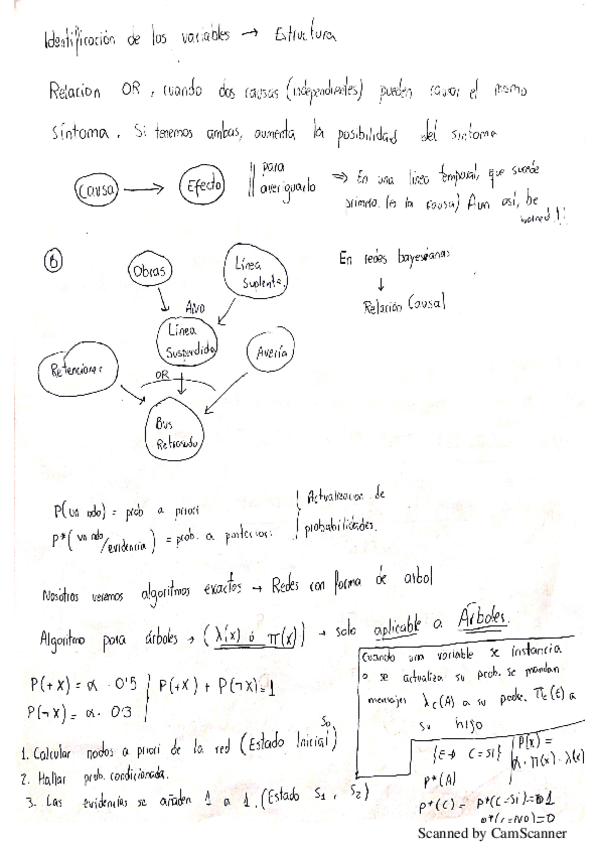 Identificación de los variables → Estructura
Relacion OR, cuando dos causas (independientes) pueden causar el mismo
síntoma. Si tenemos ambas, aumenta la posibilidad del sintoma
Causa → Efecto
para averiguarlo
⇒ En una linea temporal, que sucede
primero. (es la causa) Aun así, be
6
Obras
Línea
Suplente
AND
Línea
Suspendida
Averia
Retenciones
OR
Bus
Retrasado
En redes bayesianas
↓
Relación Causal
P(un nodo) = prob a priori
P*(un nodo/evidencia) = prob. a posteriori
Actualizacion de
probabilidades.
Nosotros veremos algoritmos exactos → Redes con forma de arbol
Algoritmo para árboles → (λ(x) ó π(x)) → solo aplicable a Árboles.
Cuando una variable se instancia
o se actualiza su prob. se mandan
mensajes λc(A) a su padre. πc(E) a
su hijo
P(+x) = α · 0'5
P(+x) + P(¬x) = 1
P(¬x) = α · 0'3
1. Calcular nodos a priori de la red (Estado Inicial) S0
2. Hallar prob. condicionada.
3. Las evidencias se añaden 1 a 1. (Estado S1, S2)
{E → C=Si}
P(x) =
α · π(x) · λ(x)
P*(A)
P*(C) = P*(C=Si) = 1
P*(C=No) = 0
Scanned by CamScanner